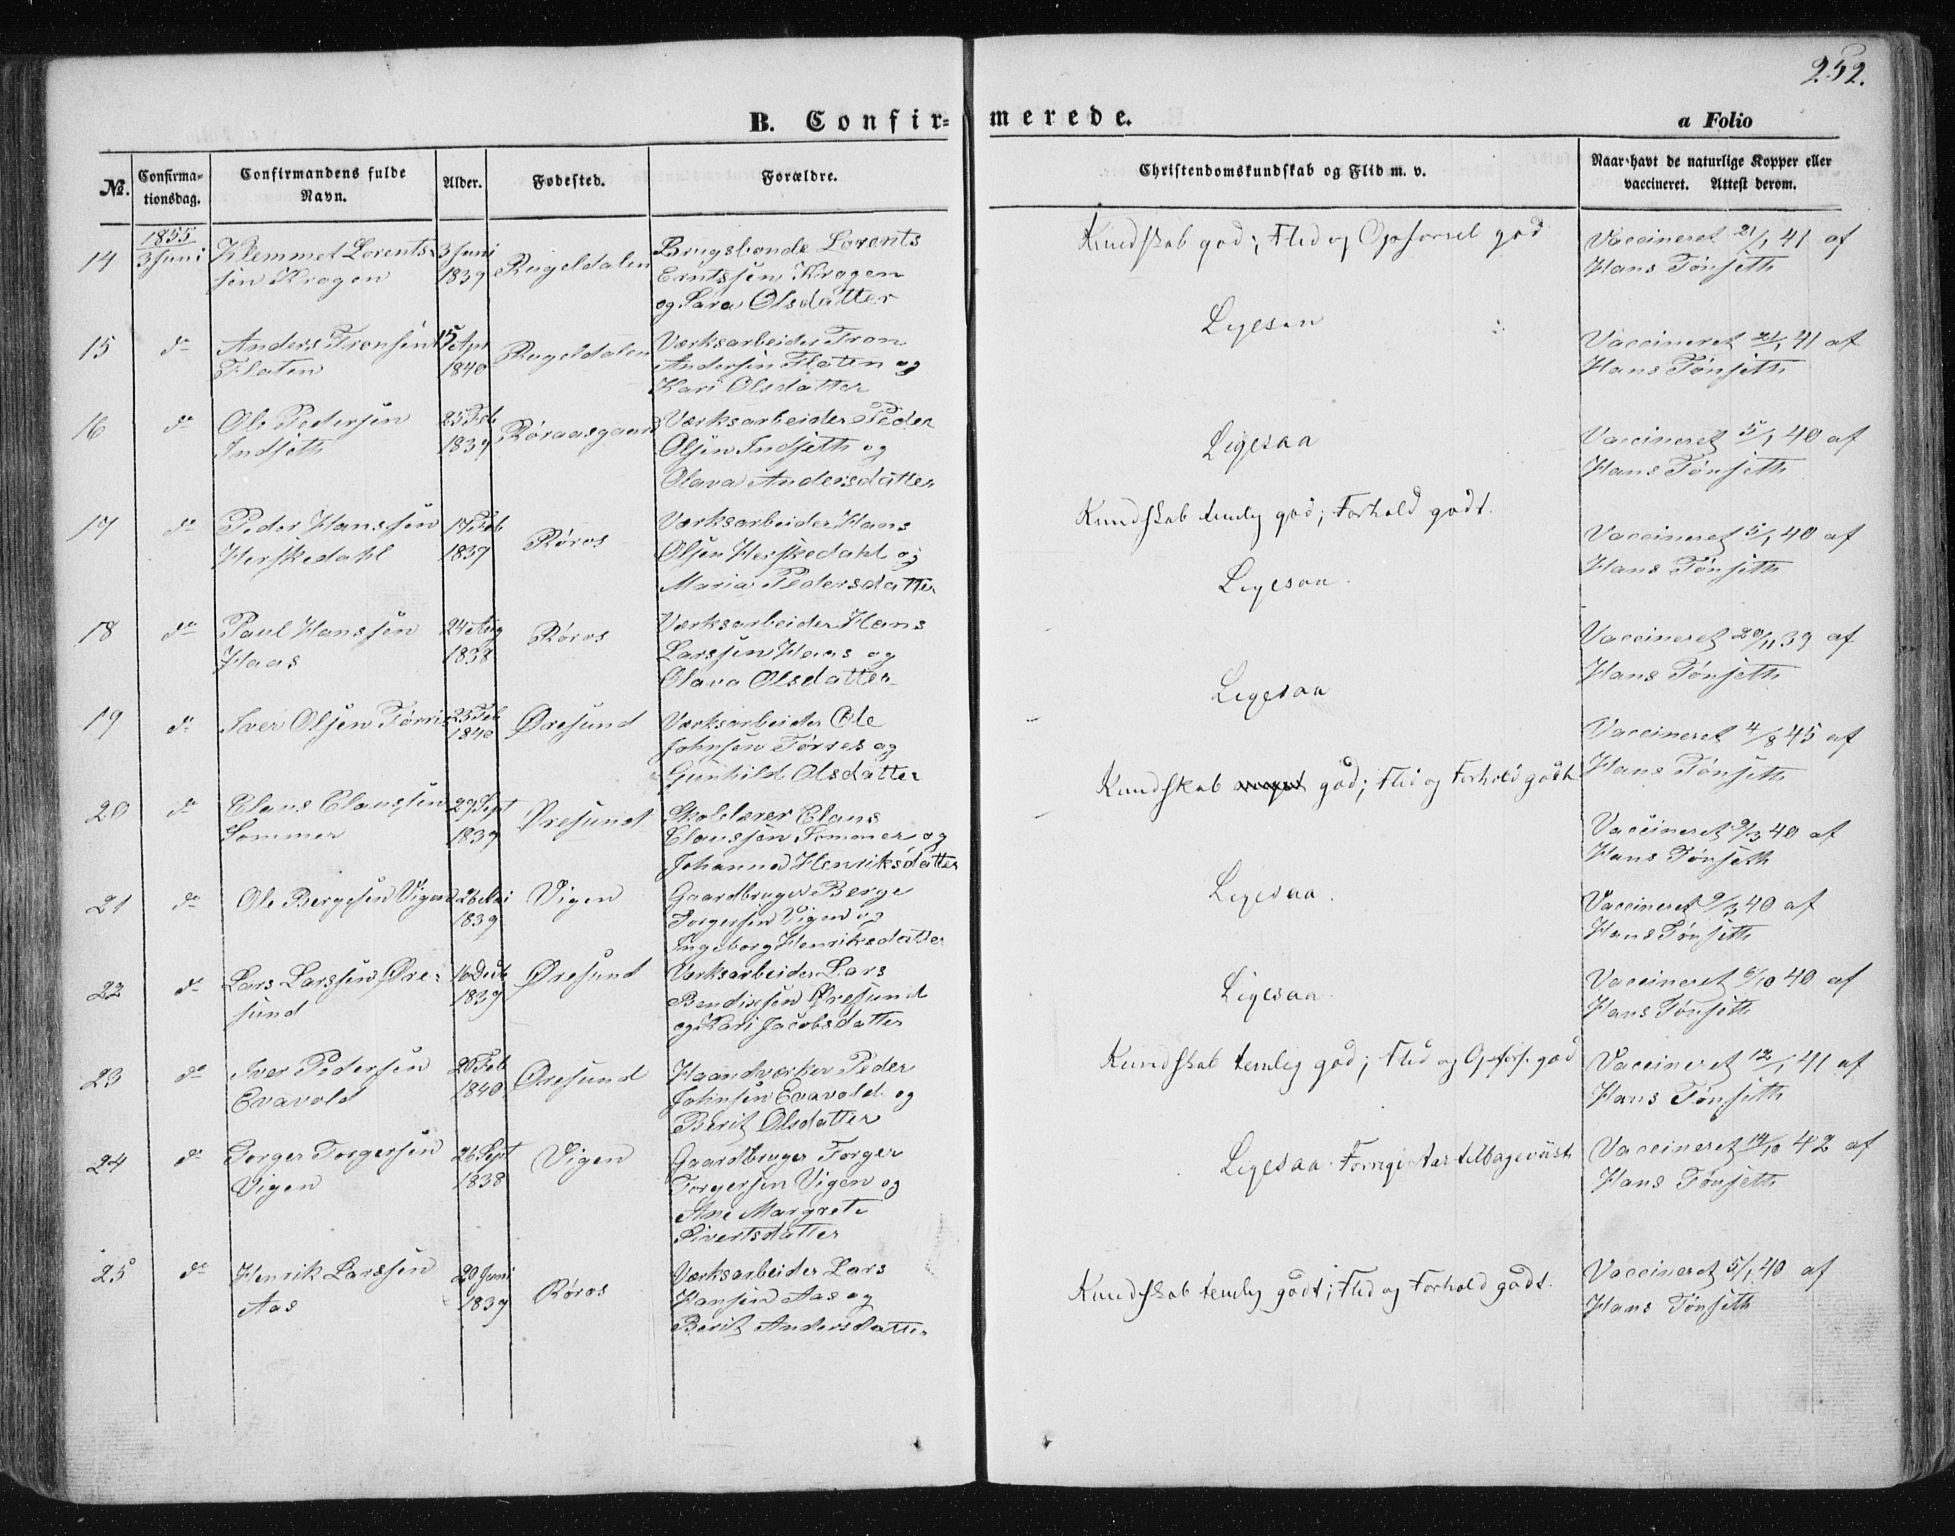 252.
B. Confir= merede.
a Folio
№.
Confirma-
tionsdag.
Confirmandens fulde
Navn.
Alder.
Fødested.
Forældre.
Christendomskundskab og Flid m. v.
Naar havt de naturlige Kopper eller
vaccineret. Attest derom.
14
1855
3 Juni
Klemmet Lorents-
sen Krogen
3 Juni
1839
Rugeldalen
Brugsbonde Lorents
Erntssen Krogen
og Sara Olsdatter
Kundskab god; Flid og Opførsel god
Vaccineret 21/1 41 af
Hans Tønseth
15
do
Anders Tronsen
Flaten
15 Apr
1840
Rugeldalen
Værksarbeider Tron
Andersen Flaten og
Kari Olsdatter
Ligesaa
Vaccineret 21/1 41 af
Hans Tønseth
16
do
Ole Pedersen
Indseth
25 Feb
1839
Røraasgaard
Værksarbeider Peder
Olsen Indseth og
Olava Andersdatter
Ligesaa
Vaccineret 5/1 40 af
Hans Tønseth
17
do
Peder Hanssen
Herskedahl
17 Feb
1837
Røros
Værksarbeider Hans
Olsen Herskedahl og
Maria Pedersdatter
Kundskab temlig god; Forhold godt.
Vaccineret 5/1 40 af
Hans Tønseth
18
do
Paul Hanssen
Haas
24 Aug
1838
Røros
Værksarbeider Hans
Larssen Haas og
Olava Olsdatter
Ligesaa.
Vaccineret 20/11 39 af
Hans Tønseth
19
do
Iver Olsen Tørres
23 Feb
1840
Øresund
Værksarbeider Ole
Johnsen Tørres og
Gunhild Olsdatter
Ligesaa
Vaccineret 4/8 45 af
Hans Tønseth
20
do
Claus Claussen
Sommer
29 Sept
1839
Øresund
Skolelærer Claus
Claussen Sommer og
Johanna Henriksdatter
Kundskab meget god; Flid og Forhold godt
Vaccineret 9/3 40 af
Hans Tønseth
21
do
Ole Bergesen Vigen
26 Mai
1839
Vigen
Gaardbruger Berge
Torgersen Vigen og
Ingeborg Henriksdatter
Ligesaa.
Vaccineret 9/3 40 af
Hans Tønseth
22
do
Lars Larssen Øre-
sund
16 Decb
1839
Øresund
Værksarbeider Lars
Bendixsen Øresund
og Kari Jacobsdatter
Ligesaa.
Vaccineret 6/10 40 af
Hans Tønseth
23
do
Iver Pedersen
Evavold
20 Feb
1840
Øresund
Haandværker Peder
Johnsen Evavold og
Berit Olsdatter
Kundskab temlig god; Flid og Opførs. god
Vaccineret 12/1 41 af
Hans Tønseth
24
do
Torger Torgersen
Vigen
26 Sept
1838
Vigen
Gaardbruger Torger
Torgersen Vigen og
Ane Margrete
Sivertsdatter
Ligesaa. Forrige Aar tilbageviist
Vaccineret 14/10 42 af
Hans Tønseth
25
do
Henrik Larssen
Aas
20 Juni
1839
Røros
Værksarbeider Lars
Hansen Aas og
Berit Andersdatter
Kundskab temlig godt; Flid og Forhold godt.
Vaccineret 5/1 40 af
Hans Tønseth